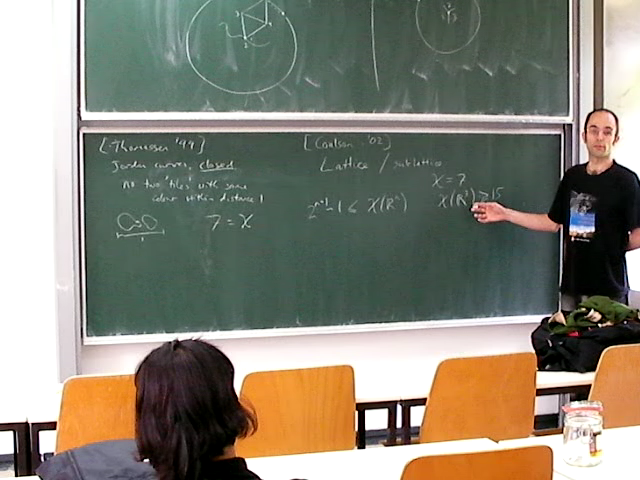 [Thomassen '99]
Jordan curves, closed
no two 'tiles' with same
colour within distance 1
1
7 = χ
[Coulson '02]
Lattice / sublattice
χ = 7
2ⁿ⁺¹-1 ≤ χ(ℝⁿ)
χ(ℝ³) ≥ 15